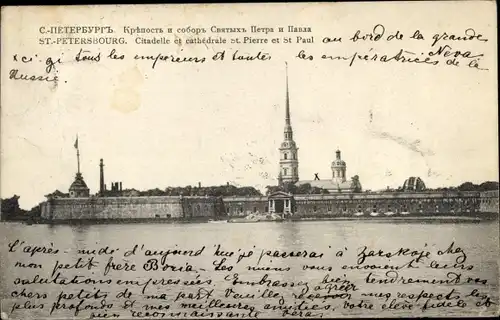 С.-ПЕТЕРБУРГЪ. Крѣпость и соборъ Святыхъ Петра и Павла
ST.-PETERSBOURG. Citadelle et cathédrale St. Pierre et St Paul
au bord de la grande Neva
ci gi tous les empereurs et toutes les impératrices de la
Russie.
L'après-midi d'aujourd'hui je passerai à Zarskoje chez
mon petit frère Boria. Les miens vous envoient leurs
salutations empressées. Embrassez bien tendrement vos
chers petits de ma part. Veuillez agréer mes respects les
plus profonds et mes meilleures amitiés, votre élève fidèle et
bien reconnaissante Vera.